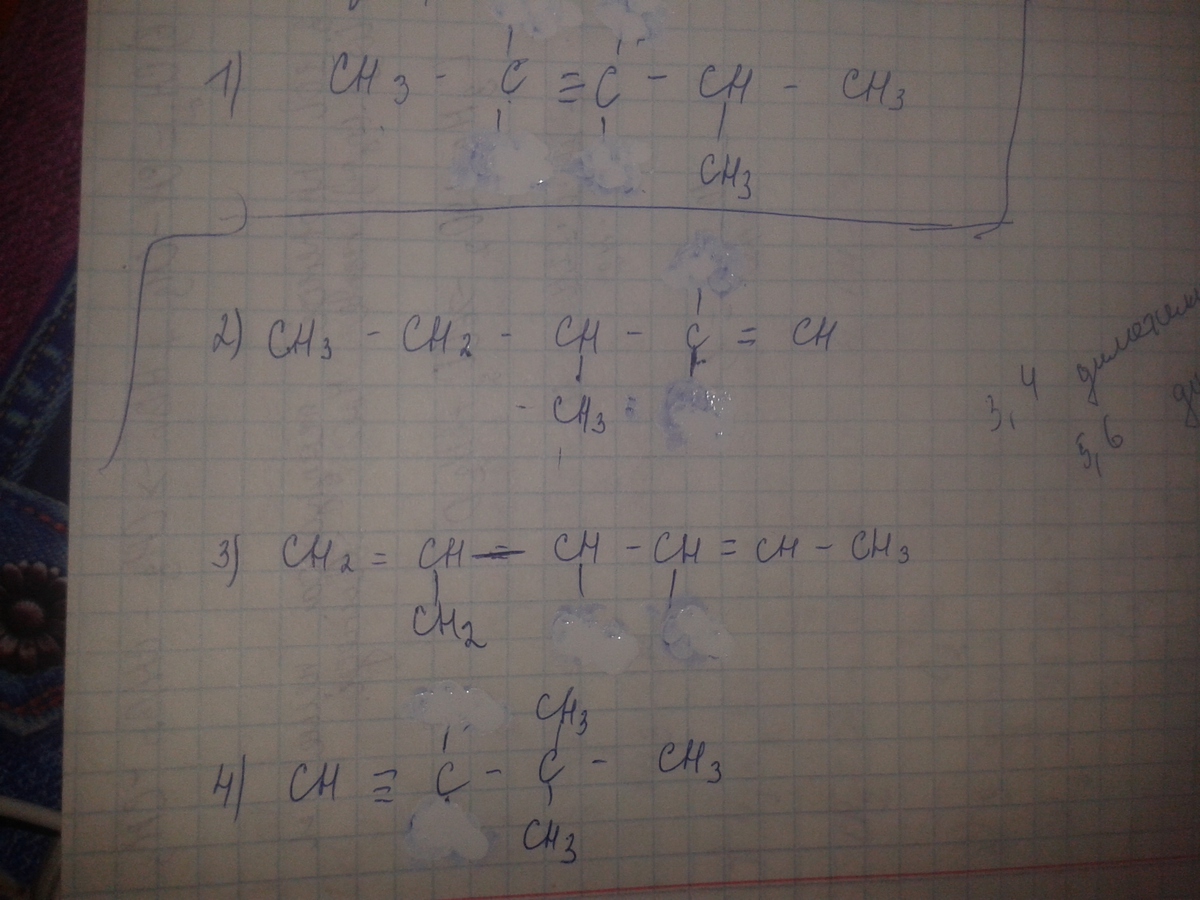 1) CH3 - C ≡ C - CH - CH3
CH3
2) CH3 - CH2 - CH - C = CH
- CH3 =
3, 4
5, 6
3) CH2 = CH - CH - CH = CH - CH3
CH2
CH3
4) CH ≡ C - C - CH3
CH3